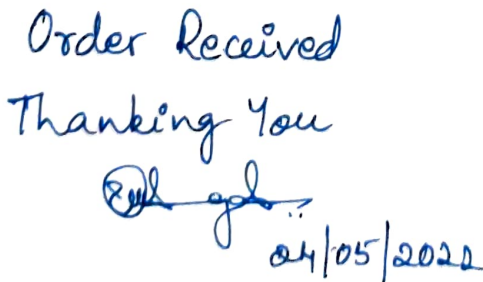 Order Received
Thanking You
04/05/2022